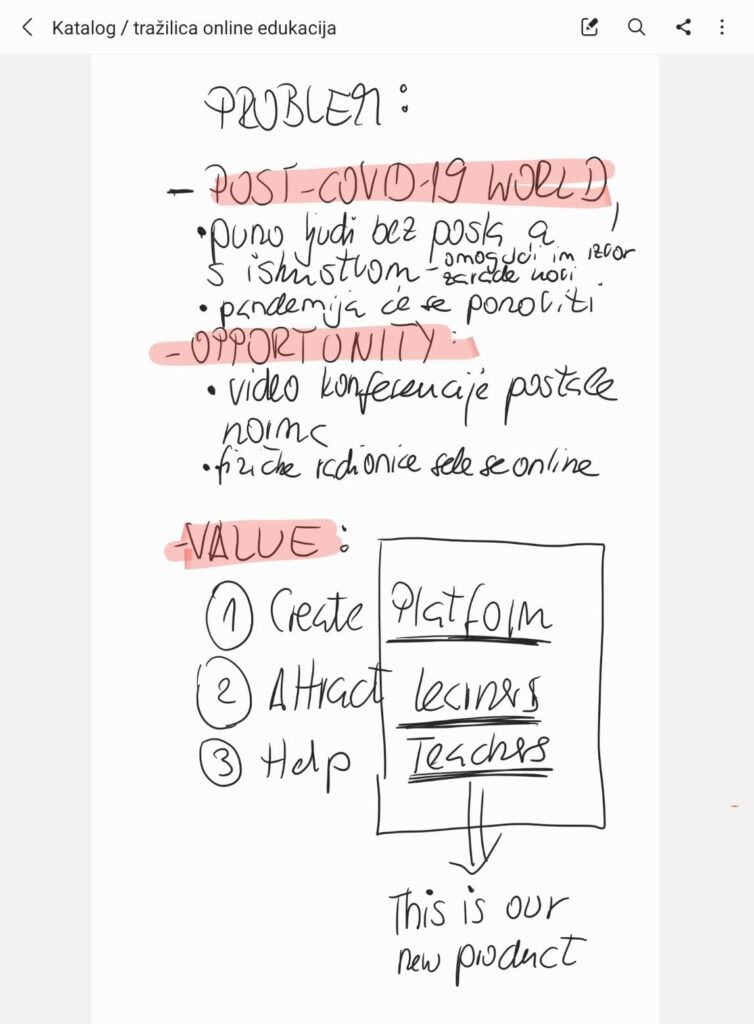 Katalog / tražilica online edukacija
PROBLEM:
- POST-COVID-19 WORLD,
• puno ljudi bez posla a
s iskustvom - omogući im izvor
zarade novi
• pandemija će se ponoviti
- OPPORTUNITY:
• video konferencije postale
norma
• fizičke radionice sele se online
- VALUE:
1 Create Platform
2 Attract learners
3 Help Teachers
This is our
new product